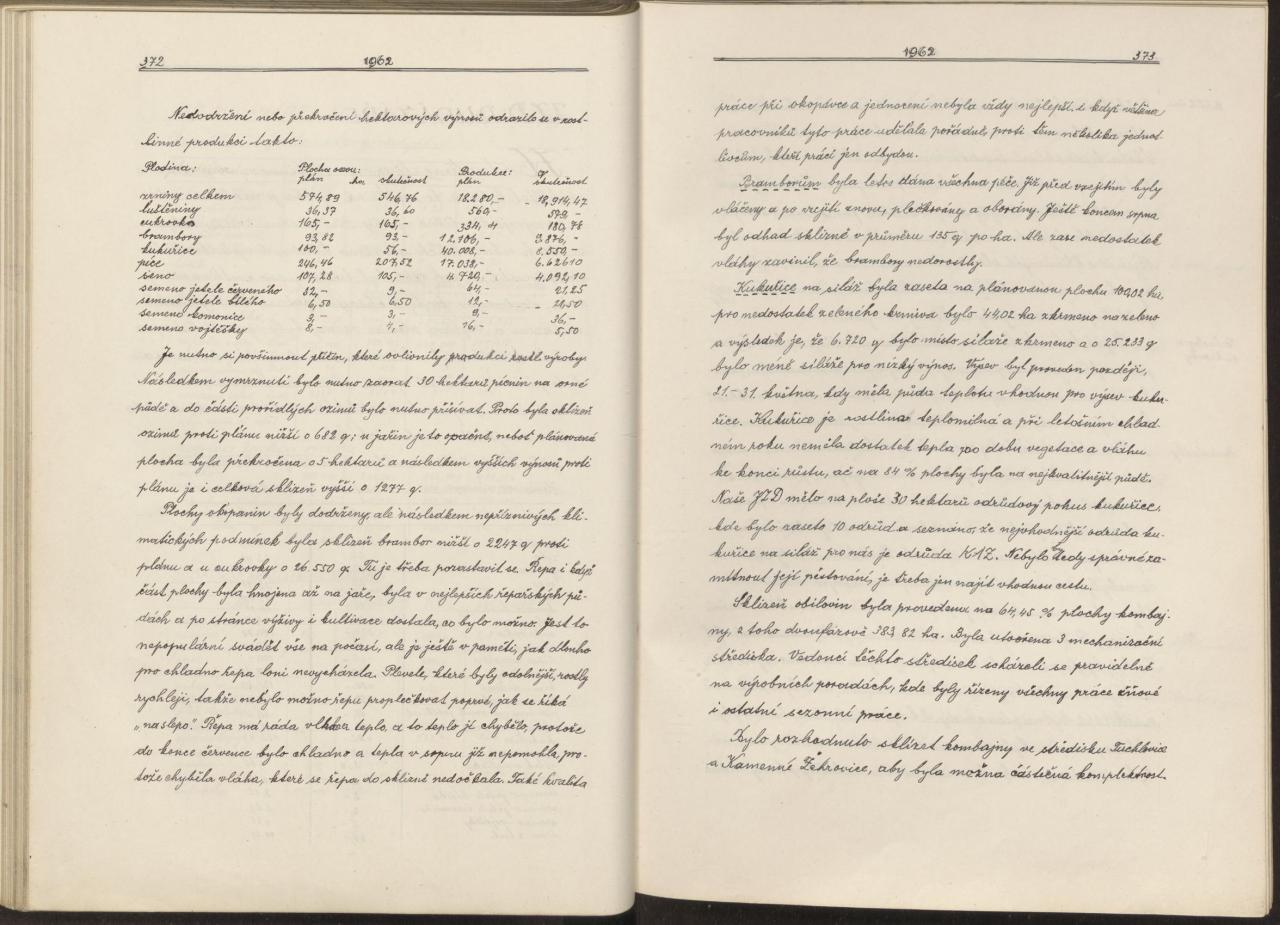 372 1962
Nedodržení nebo překročení hektarových výnosů odrazilo se v rost-
linné produkci takto:
Plodina: Plocha osevu: Produkce:
plán ha skutečnost plán skutečnost
zrniny celkem 574,89 546,76 18.280,- 18.914,47
luštěniny 36,37 36,60 560,- 579,-
cukrovka 165,- 165,-
brambory 93,82 93,- 12.106,-
kukuřice 100,- 56,- 40.008,- 8.550,-
píce 246,46 207,52 17.038,- 6.626 10
seno 107,28 105,- 4.720,- 4.092,10
semeno jetele červeného 32,- 9,- 64,- 21,25
semeno jetele bílého 6,50 6,50 12,- 21,50
semeno komonice 3,- 3,- 9,- 36,-
semeno vojtěšky 8,- 4,- 16,- 5,50
Je nutno si povšimnout příčin, které ovlivnily produkci rostl. výroby.
Následkem vymrznutí bylo nutno zaorat 30 hektarů pícnin na orné
půdě a do části prořídlých ozimů bylo nutno přisívat. Proto byla sklizeň
ozimů proti plánu nižší o 682 q; u jařin je to opačně, neboť plánovaná
plocha byla překročena o 5 hektarů a následkem vyšších výnosů proti
plánu je i celková sklizeň vyšší o 1277 q.
Plochy okopanin byly dodrženy, ale následkem nepříznivých kli-
matických podmínek byla sklizeň brambor nižší o 2247 q proti
plánu a u cukrovky o 26.550 q. Tu je třeba pozastavit se. Řepa i když
část plochy byla hnojena až na jaře, byla v nejlepších řepařských pů-
dách a po stránce výživy i kultivace dostala, co bylo možno. Jest to
nepopulární svádět vše na počasí, ale je ještě v paměti, jak dlouho
pro chladno řepa loni nevycházela. Plevele, které byly odolnější, rostly
rychleji, takže nebylo možno řepu proplečkovat poprvé, jak se říká
„naslepo". Řepa má ráda vlhko a teplo, a to teplo jí chybělo, protože
do konce července bylo chladno a tepla v srpnu již nepomohla, pro-
tože chyběla vláha, které se řepa do sklizně nedočkala. Také kvalita
1962 373
práce při okopávce a jednocení nebyla vždy nejlepší. i když většina
pracovníků tyto práce udělala pořádně, proti těm několika jednot-
livcům, kteří práci jen odbydou.
Bramborům byla letos dána všechna péče. Již před vzejitím byly
vláčeny a po vzejití znovu, plečkovány a oborány. Ještě koncem srpna
byl odhad sklizně v průměru 135 q po ha. Ale zase nedostatek
vláhy zavinil, že brambory nedorostly.
Kukuřice na siláž byla zaseta na plánovanou plochu 100,02 ha,
pro nedostatek zeleného krmiva bylo 44,02 ha zkrmeno nazeleno
a výsledek je, že 6.720 q bylo místo siláže zkrmeno a o 25.233 q
bylo méně siláže pro nízký výnos. Výsev byl proveden později,
21.-31. května, kdy měla půda teplotu vhodnou pro výsev kuku-
řice. Kukuřice je rostlina teplomilná a při letošním chlad-
ném roku neměla dostatek tepla po dobu vegetace a vláhu
ke konci růstu, ač na 84 % plochy byla na nejkvalitnější půdě.
Naše JZD mělo na ploše 30 hektarů odrůdový pokus kukuřice,
kde bylo zaseto 10 odrůd a seznáno, že nejvhodnější odrůda ku-
kuřice na siláž pro nás je odrůda K-1Z. Nebylo tedy správné za-
mítnout její pěstování, je třeba jen najít vhodnou cestu.
Sklizeň obilovin byla provedena na 64,45 % plochy kombaj-
ny, z toho dvoufázově 383,82 ha. Byla utvořena 3 mechanizační
střediska. Vedoucí těchto středisek scházeli se pravidelně
na výrobních poradách, kde byly řízeny všechny práce žňové
i ostatní sezonní práce.
Bylo rozhodnuto sklízet kombajny ve středisku Tuchlovice
a Kamenné Žehrovice, aby byla možná částečná komplexnost.